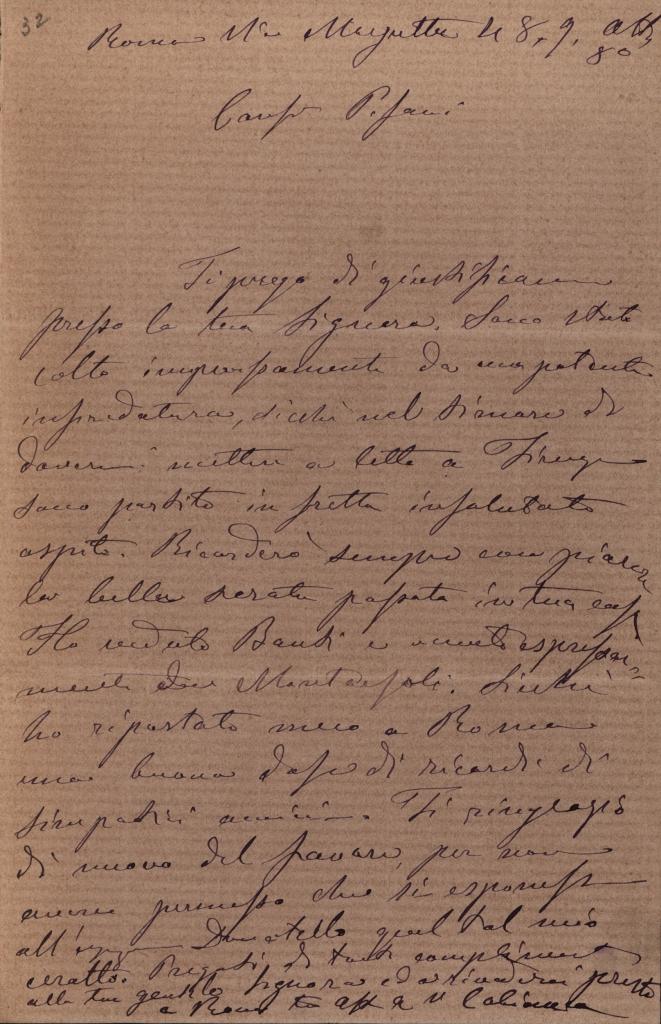 32
Roma Via Margutta 48, 9, 
80
Caro Pisani
Ti prego di giustificarmi
presso la tua Signora. Sono stato
colto improvisamente da una potente
infredatura, sicchè nel timore di
dovermi mettere a letto a Firenze
sono partito in fretta insalutato
ospite. Ricorderò sempre con piacere
la bella serata passata in tua casa
Ho veduto Bandi e venuto espressa-
mente da Sicchè
ho riportato meco a Roma
una buona dose di ricordi di
simpatici amici. Ti ringrazio
di nuovo del favore per non
avere permesso che si esponesse
all' Donatello quel tal mio
Pregoti di tanti complimenti
alla tua gentile Signora ed arrivederci presto
a Roma tuo aff